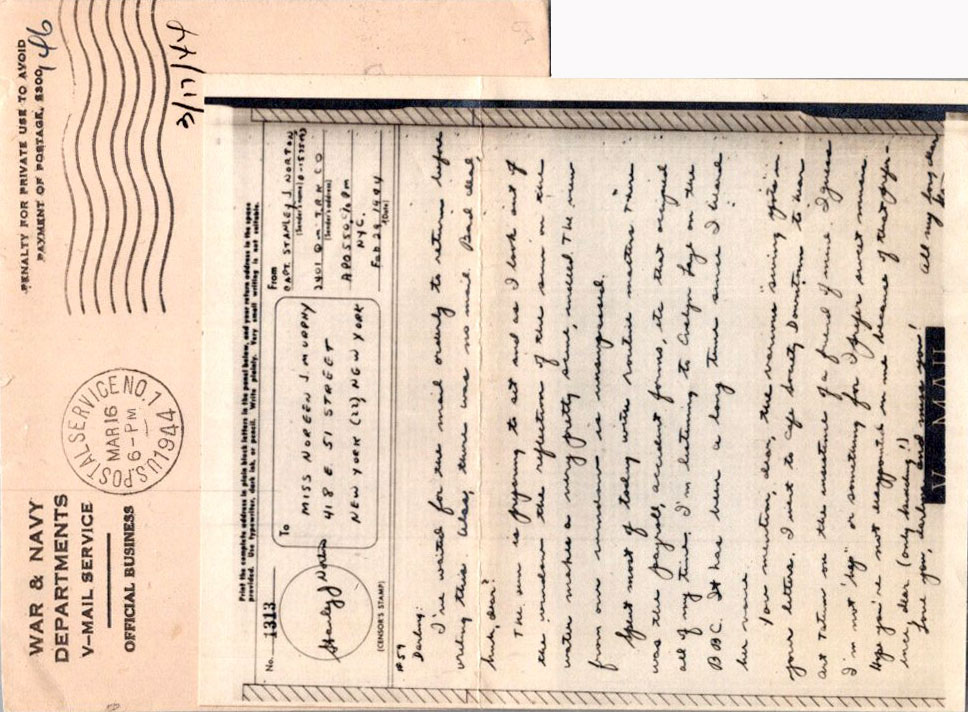 WAR & NAVY
DEPARTMENTS
V-MAIL SERVICE
OFFICIAL BUSINESS
U.S. POSTAL SERVICE NO. 1
MAR 16
6-PM
1944
PENALTY FOR PRIVATE USE TO AVOID
PAYMENT OF POSTAGE, $300
3/17/44
Print the complete address in plain block letters in the panel below, and your return address in the space
provided. Use typewriter, dark ink, or pencil. Write plainly. Very small writing is not suitable.
No. 1313
(CENSOR'S STAMP)
To
MISS NOREEN J. MURPHY
418 E 51 STREET
NEW YORK (22) NEW YORK
From
CAPT. STANLEY J. NORTON
(Sender's name)
TRK CO
(Sender's address)
NYC.
Feb 29 1944
(Date)
#59
Darling:
I've waited for the mail orderly to return before
writing this. Alas, there was no mail. Bad deal,
huh, dear?
The sun is preparing to set and as I look out of
the window the reflection of the sun on the
water makes a very pretty scene, indeed. The view
from our windows is unsurpassed.
Spent most of today with routine matters. There
was the payroll, accident forms, etc that occupied
all of my time. I'm listening to Evelyn Laye on the
BBC. It has been a long time since I heard
her voice
You mention, dear, the various "swing" spots in
your letters. I went to Cafe Society Downtown to hear
Art Tatum on the insistence of a friend of mine. I guess
I'm not "hep" or something for I prefer sweet music
Hope you're not disappointed in me because of that
dear (only kidding!)
Love you, darling and miss you!
All my love, dear
V-MAIL